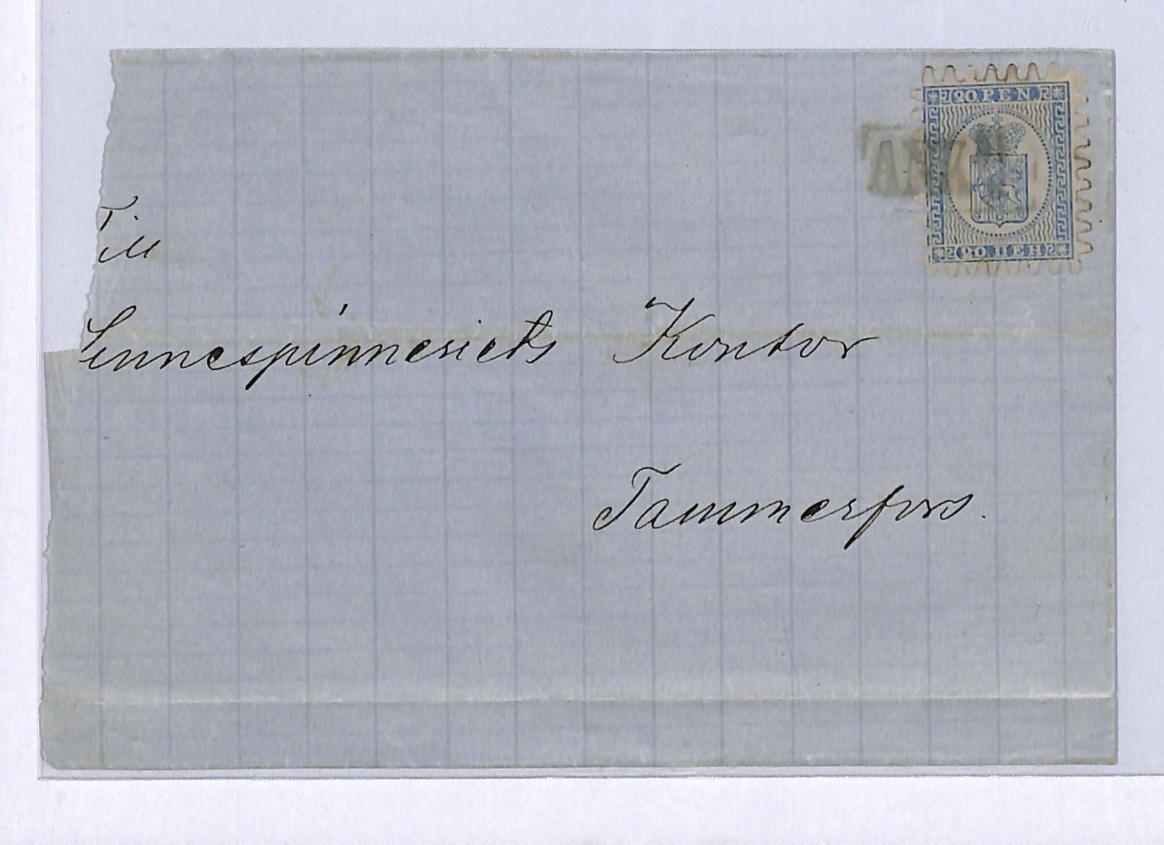 20 PEN
20 ПЕН
Till
Linnespinneriets Kontor
Tammerfors.